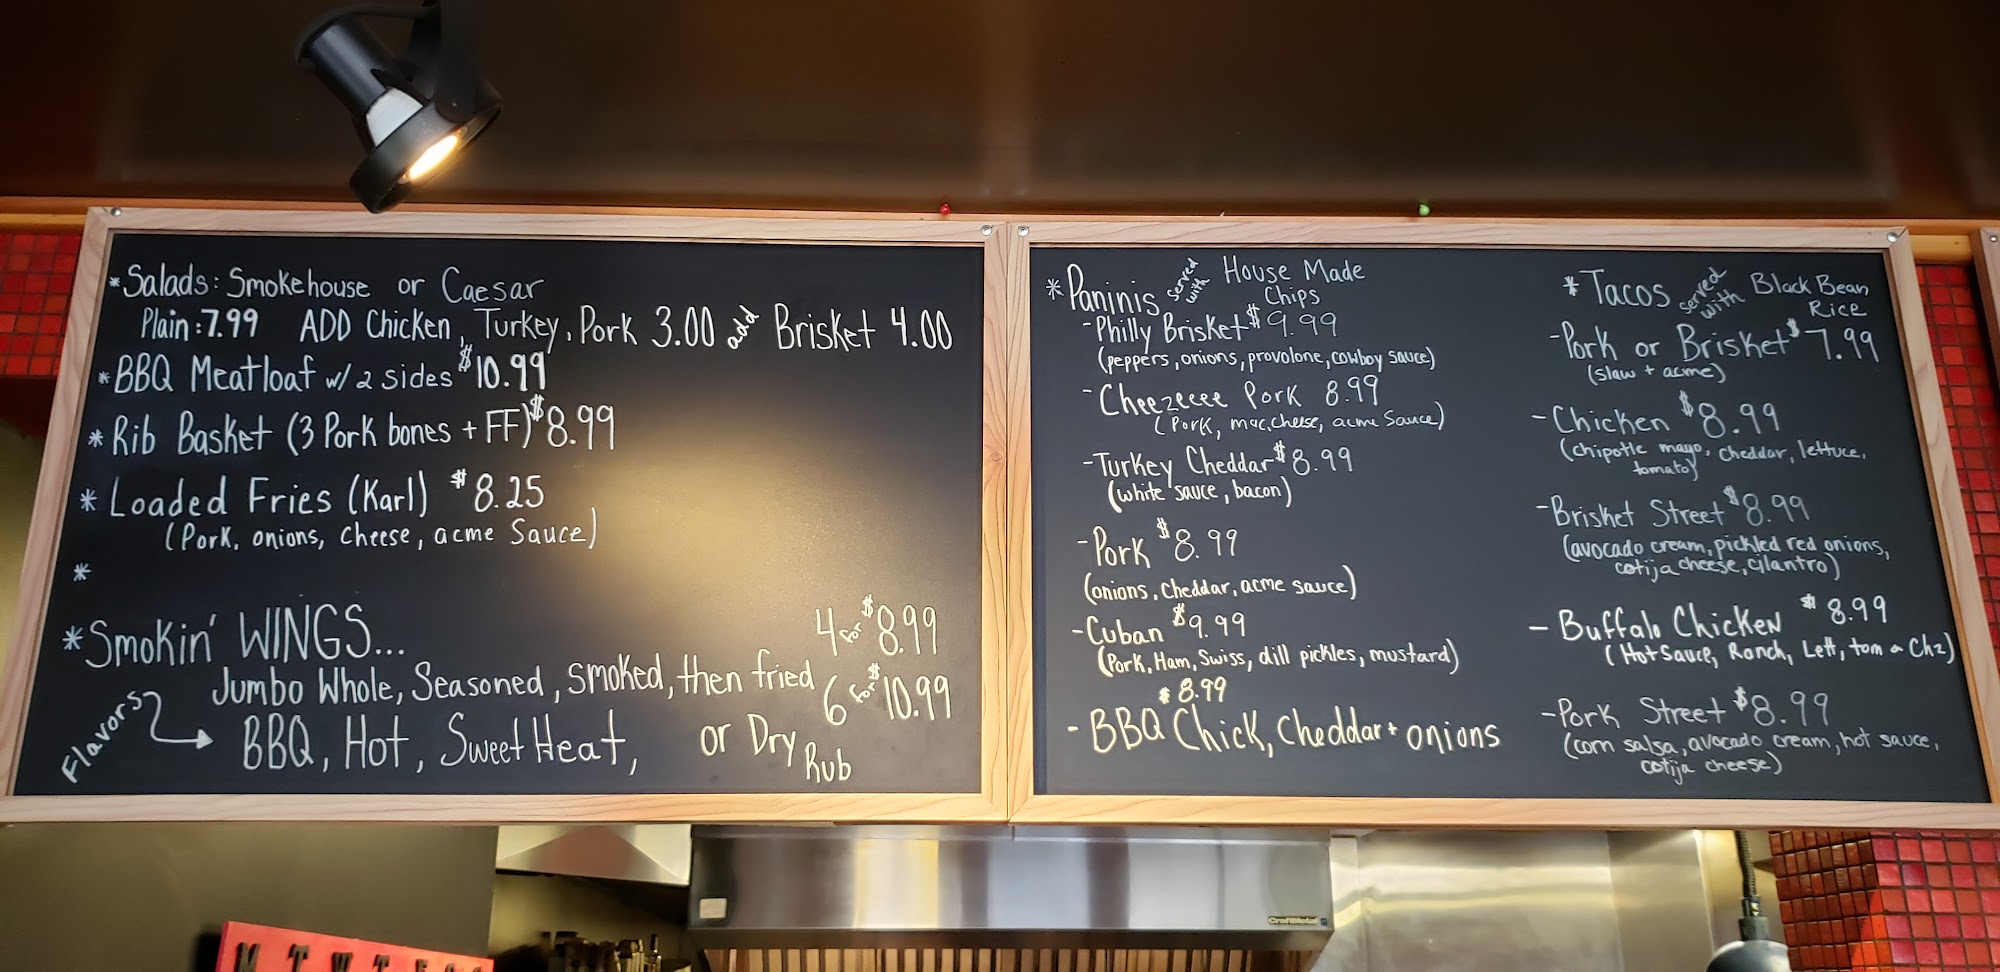 *Salads: Smokehouse or Caesar
Plain: 7.99 ADD Chicken, Turkey, Pork 3.00 add Brisket 4.00
*BBQ Meatloaf w/ 2 sides $10.99
*Rib Basket (3 Pork bones + FF) $8.99
*Loaded Fries (Karl) $8.25
(Pork, onions, cheese, acme Sauce)
*
*Smokin' WINGS... 4 for $8.99
Jumbo Whole, Seasoned, smoked, then fried 6 for $10.99
Flavors BBQ, Hot, Sweet Heat, or Dry Rub
*Paninis served with House Made Chips
-Philly Brisket $9.99
(peppers, onions, provolone, cowboy sauce)
-Cheezeeee Pork 8.99
(Pork, mac, cheese, acme Sauce)
-Turkey Cheddar $8.99
(white sauce, bacon)
-Pork $8.99
(onions, cheddar, acme sauce)
-Cuban $9.99
(Pork, Ham, Swiss, dill pickles, mustard)
$8.99
-BBQ Chick, Cheddar + onions
*Tacos served with Black Bean Rice
-Pork or Brisket $7.99
(slaw + acme)
-Chicken $8.99
(chipotle mayo, cheddar, lettuce,
tomato)
-Brisket Street $8.99
(avocado cream, pickled red onions,
cotija cheese, cilantro)
-Buffalo Chicken $8.99
(Hot Sauce, Ranch, Lett, tom & Chz)
-Pork Street $8.99
(corn salsa, avocado cream, hot sauce,
cotija cheese)
CraftMetal
M T W T F S S